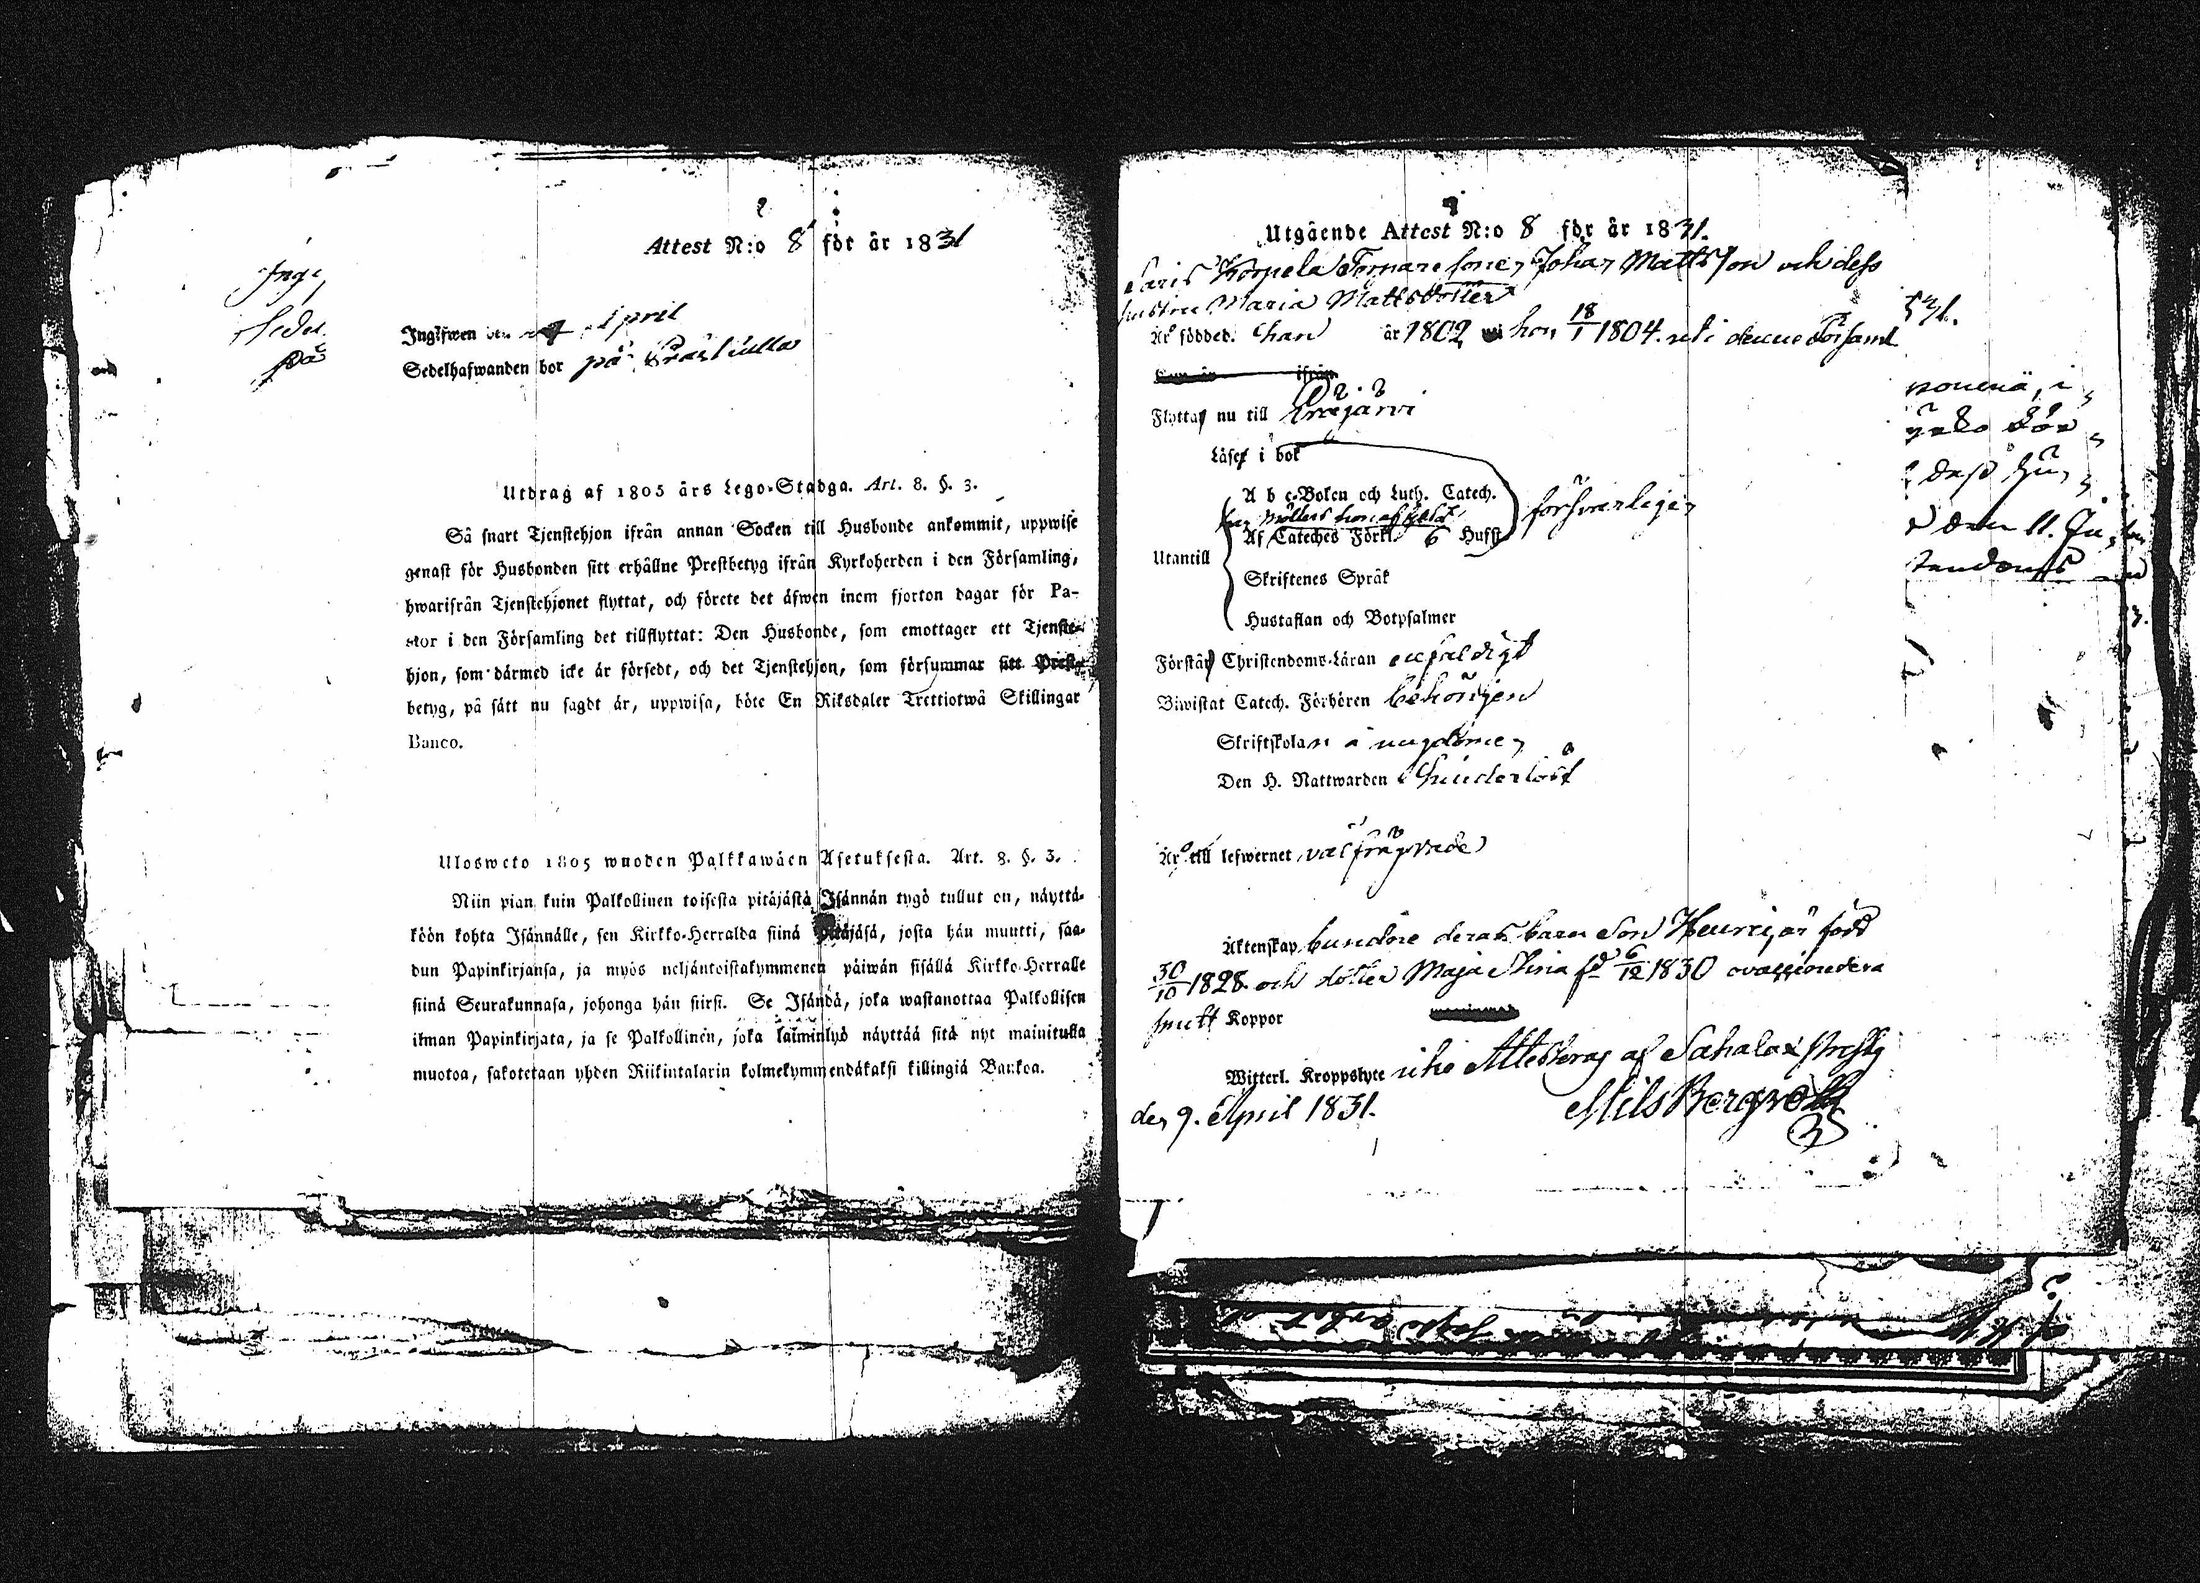 Attest N:o 8 för år 1831
Ing
Sedel
på
Ingifwen den April
Sedelhafwanden bor på
Utdrag af 1805 års Lego-Stadga. Art. 8. §. 3.
Så snart Tjenstehjon ifrån annan Socken till Husbonde ankommit, uppwise
genast för Husbonden sitt erhållne Prestbetyg ifrån Kyrkoherden i den Församling,
hwarifrån Tjenstehjonet flyttat, och förete det åfwen inom fjorton dagar för Pa-
stor i den Församling det tillflyttat: Den Husbonde, som emottager ett Tjenste-
hjon, som därmed icke är försedt, och det Tjenstehjon, som försummar sitt Prest-
betyg, på sätt nu sagdt är, uppwisa, böte En Riksdaler Trettiotwå Skillingar
Banco.
Uloswoto 1805 wuoden Palkkawäen Asetuksesta. Art. 8. §. 3.
Niin pian kuin Palkollinen toisesta pitäjästä Isännän tygö tullut on, näyttä-
köön kohta Isännälle, sen Kirkko-Herralda siinä pitäjäsä, josta hän muutti, saa-
dun Papinkirjansa, ja myös neljäntoistakymmenen päiwän sisällä Kirkko-Herralle
siinä Seurakunnasa, johonga hän siirsi. Se Isändä, joka wastanottaa Palkollisen
ilman Papinkirjata, ja se Palkollinen, joka laiminlyö näyttää sitä nyt mainitulla
muotoa, sakotetaan yhden Riikintalarin kolmekymmendäkaksi killingiä Bankoa.
Utgående Attest N:o 8 för år 1831.
Korpela Torpare sonen Johan Mattsson och dess
hustru Maria Mattsdotter
Äro födde: han år 1802 hon 18/1 1804. uti denne Församl
ifrån
Flytta nu till
Läser i bok
A b c-Boken och Luth. Catech. försvarligen
Af Cateches Förkl. 6 Hufst
Utantill
Skriftenes Språk
Hustaflan och Botpsalmer
Förstå Christendoms-Läran enfaldigt
Biwistat Catech. Förhören behörigen
Skriftskolan i ungdomen
Den H. Nattwarden
Äro till lefwernet välfrägdade
Äktenskap bundne deras barn Son Henric är född
30/10 1828 och dotter Maja Stina fd 6/12 1830 ovaccinerera
haft Koppor
Witterl. Kroppslyte icke Attesteras af Sahalax
den 9. April 1831. Nils Bergroth
531.
den 11. Ju